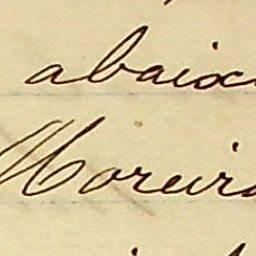 abaixo
Moreira